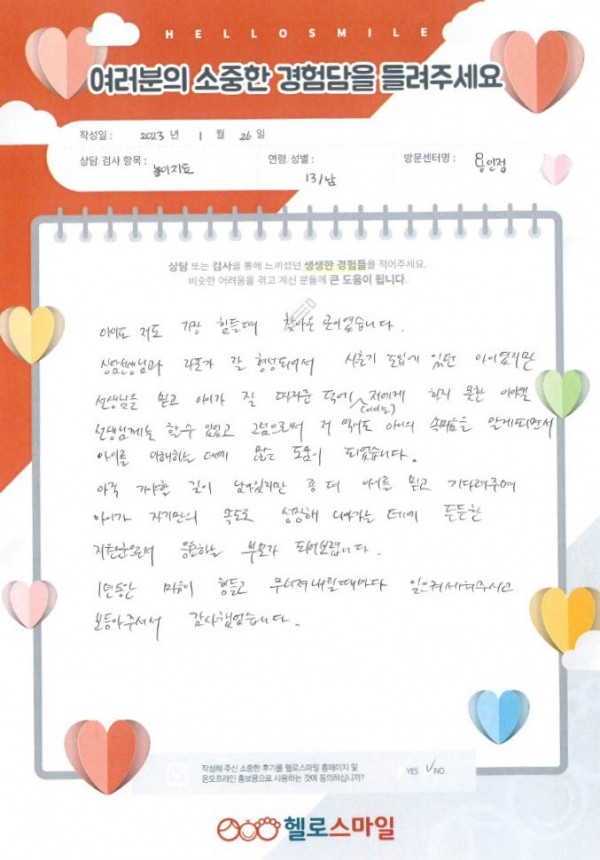 HELLOSMILE
여러분의 소중한 경험담을 들려주세요
작성일 : 2023 년 1 월 26 일
상담 검사 항목 : 놀이치료 연령 성별 : 13/남 방문센터명 : 용인점
상담 또는 검사를 통해 느끼셨던 생생한 경험들을 적어주세요.
비슷한 어려움을 겪고 계신 분들께 큰 도움이 됩니다.
아이도 저도 가장 힘들때 찾아온 곳이였습니다.
상담선생님과 라포가 잘 형성되어서 사춘기 돌입에 있던 아이였지만
선생님을 믿고 아이가 잘 따라준 덕에 저에게 하지 못한 이야기를
(엄마)
선생님께는 할 수 있었고 그럼으로써 저 역시도 아이의 속마음을 알게되면서
아이를 이해하는 데에 많은 도움이 되었습니다.
아직 가야할 길이 남아있지만 좀 더 아이를 믿고 기다려주며
아이가 자기만의 속도로 성장해 나아가는 데에 든든한
지원군으로서 응원하는 부모가 되어보렵니다.
1년동안 마음이 힘들고 무너져내릴때마다 일으켜세워주시고
보듬아주셔서 감사했었습니다.
작성해 주신 소중한 후기를 헬로스마일 홈페이지 및
온오프라인 홍보용으로 사용하는 것에 동의하십니까? YES ✓NO
헬로스마일